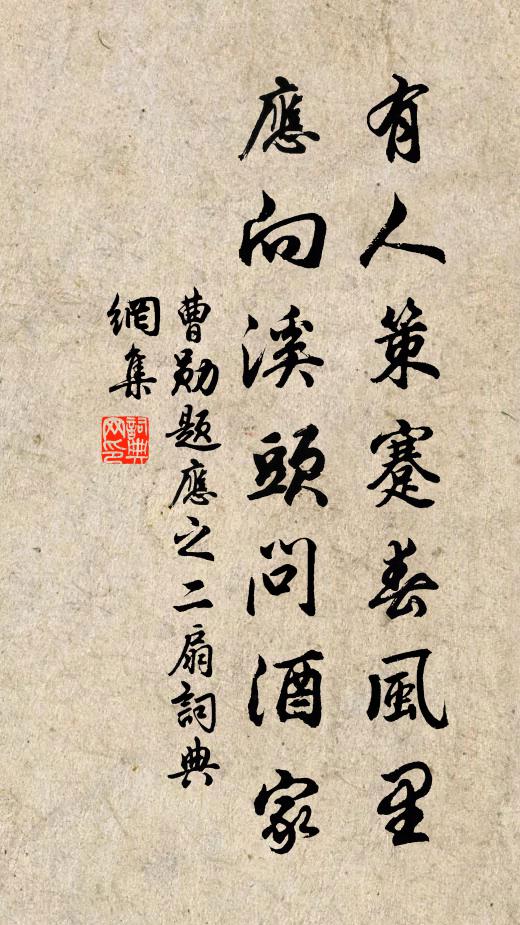 有人策蹇春風里
應向溪頭問酒家
曹勛題應之二扇詞典
網集
詞典
网印